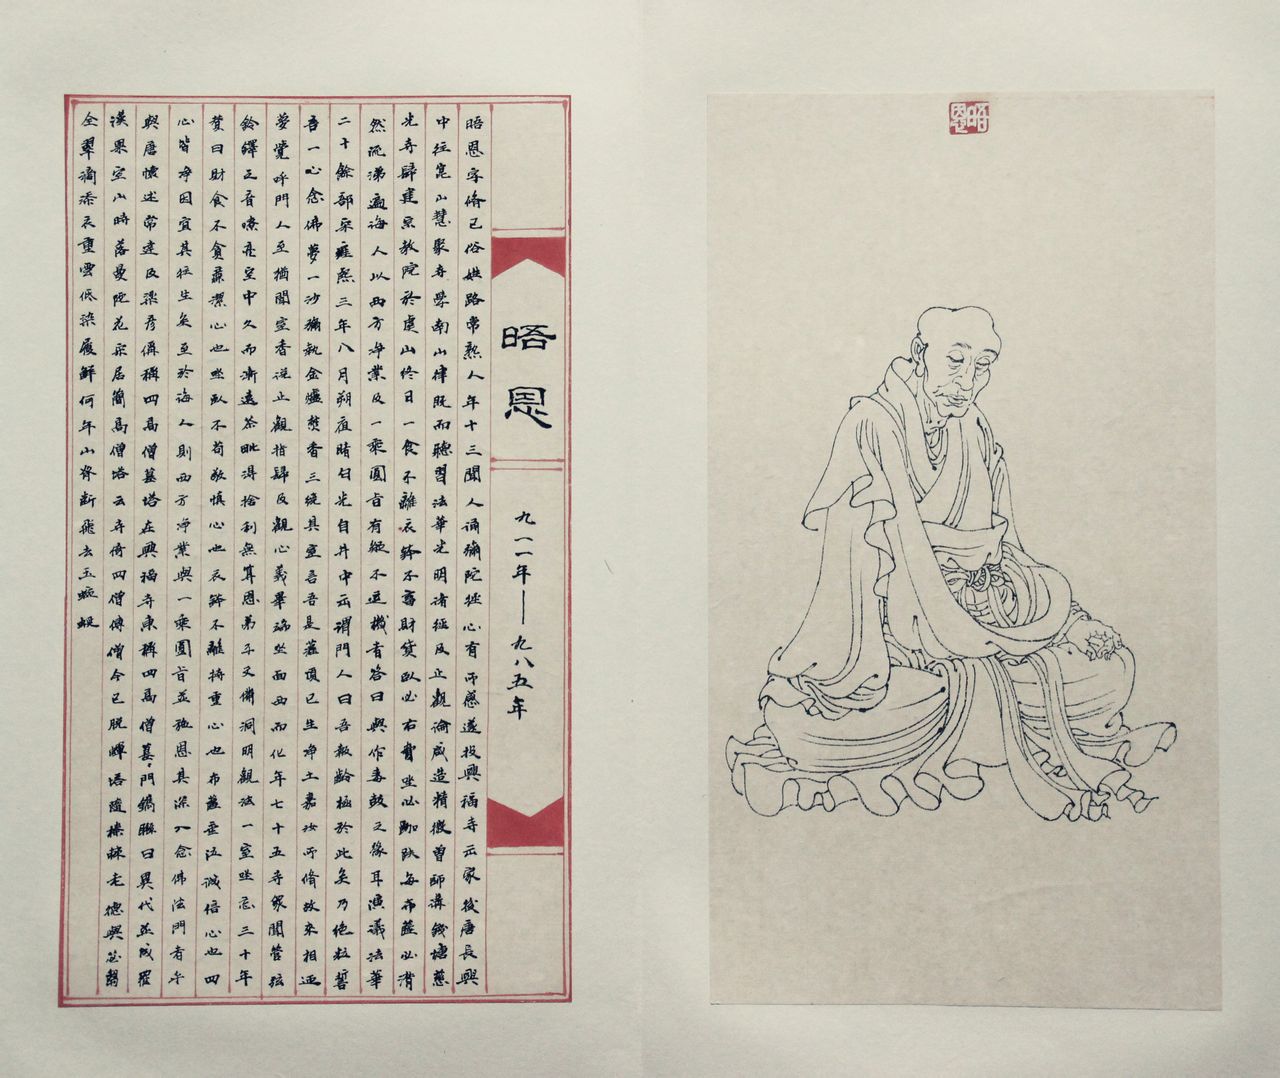 晤恩
九一一年——九八五年
晤恩字脩己俗姓路常熟人年十三聞人誦彌陀經心有所感遂投興福寺出家後唐長興
中往崑山慧聚寺學南山律既而聽習法華光明諸經及止觀論咸造精微曾師講錢塘慈
光寺歸建景教院於虞山終日一食不離衣鉢不畜財貨臥必右脅坐必跏趺每布薩必潸
然流涕遍誨人以西方淨業及一乘圓旨有疑不逗機者答曰與作毒鼓之緣耳演議法華
二十餘部宋雍熙三年八月朔夜睹白光自井中出謂門人曰吾報齡極於此矣乃絕粒誓
吾一心念佛夢一沙彌執金爐焚香三繞其室吾吾是灌頂已生淨土嘉汝所脩故來相迎
夢覺呼門人至猶聞室香說止觀指歸及觀心義畢端坐面西而化年七十五寺眾聞管弦
鈴鐸之音嘹亮空中久而漸遠茶毗得捨利無算恩弟子文備洞明觀法一室坐忘三十年
贊曰財食不貪蠲潔心也坐臥不苟敬慎心也衣鉢不離持重心也布薩垂泣誠倍心也四
心皆淨因宜其往生矣至於誨人則西方淨業與一乘圓旨並施恩其深入念佛法門者乎
與唐懷述常達及梁彥偁稱四高僧墓塔在興福寺東稱四高僧墓門鐫聯曰異代並成羅
漢果空山時落曼陀花宋居簡高僧塔云寺倚四僧傳僧今已脫蟬塔隨榛棘老德與芯芻
全翠滴添衣重雲低染屐鮮何年山脊斷飛去玉蜿蜒
晤恩